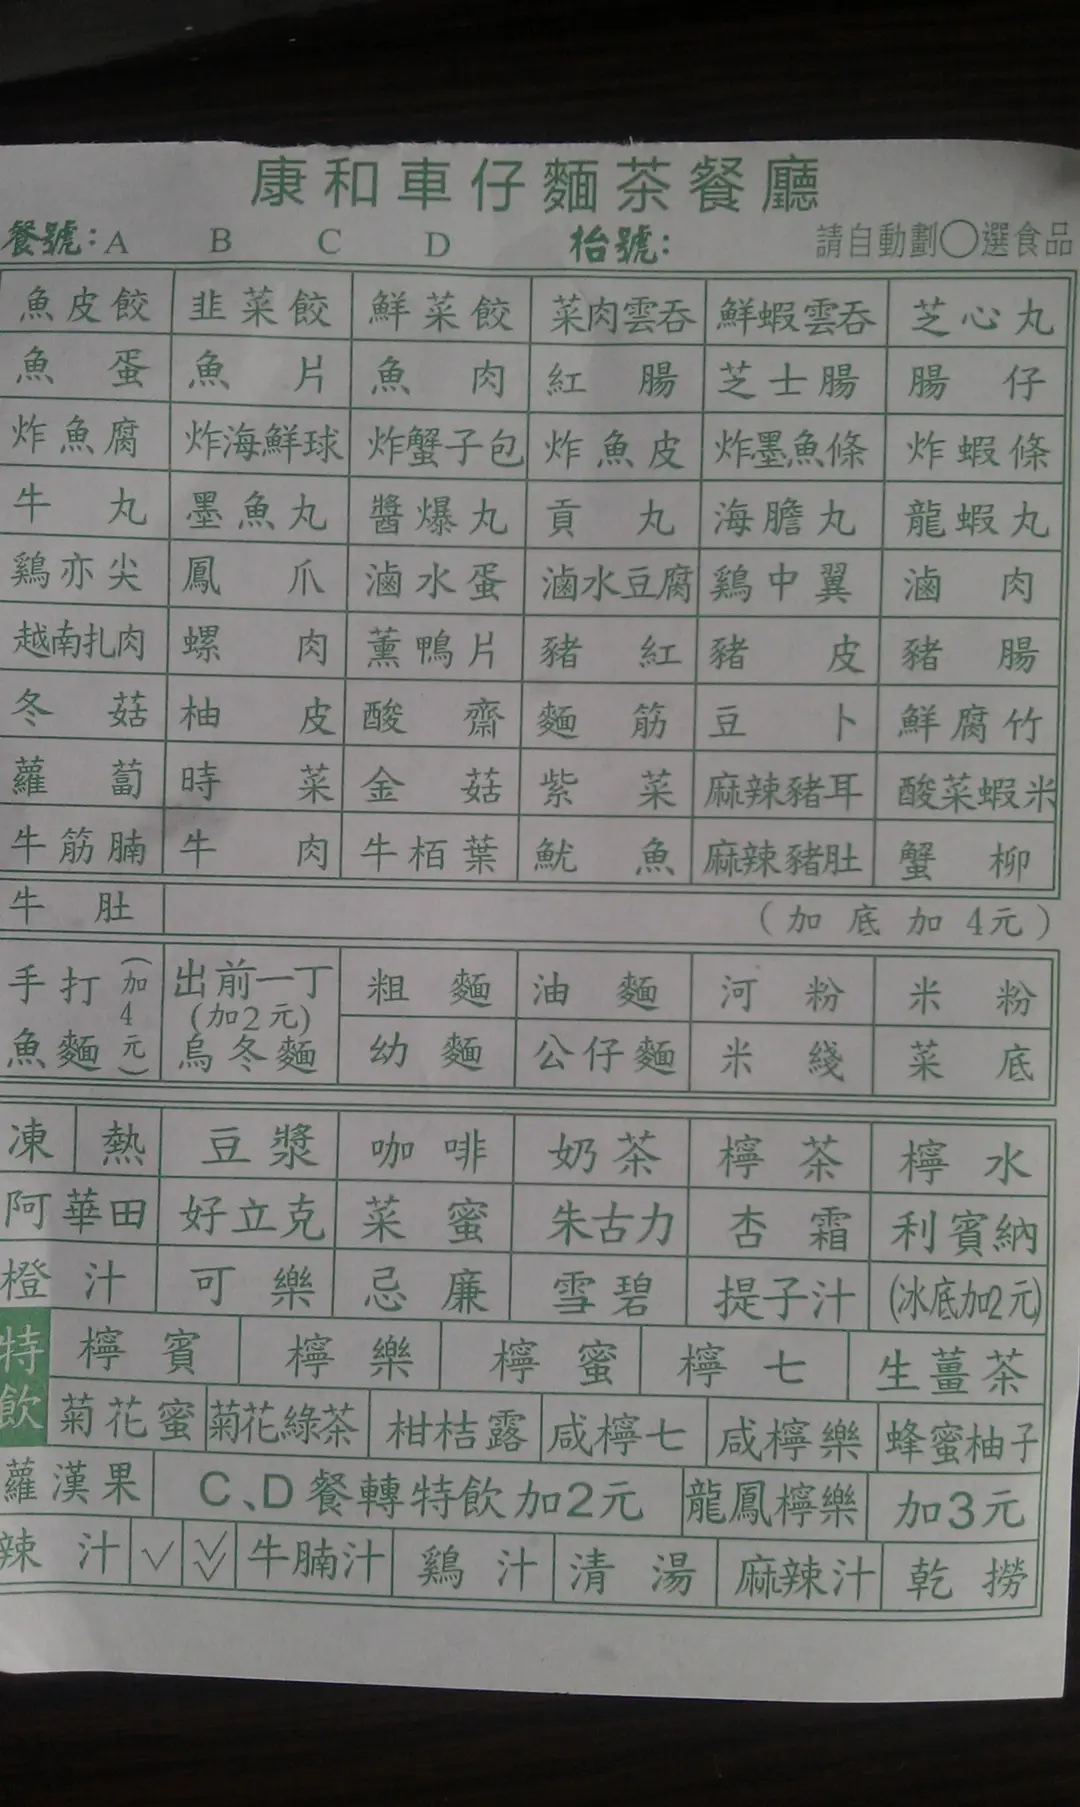 康和車仔麵茶餐廳
餐號：A B C D 枱號： 請自動劃○選食品
魚皮餃 韭菜餃 鮮菜餃 菜肉雲吞 鮮蝦雲吞 芝心丸
魚蛋 魚片 魚肉 紅腸 芝士腸 腸仔
炸魚腐 炸海鮮球 炸蟹子包 炸魚皮 炸墨魚條 炸蝦條
牛丸 墨魚丸 醬爆丸 貢丸 海膽丸 龍蝦丸
鷄亦尖 鳳爪 滷水蛋 滷水豆腐 鷄中翼 滷肉
越南扎肉 螺肉 薰鴨片 豬紅 豬皮 豬腸
冬菇 柚皮 酸齋 麵筋 豆卜 鮮腐竹
蘿蔔 時菜 金菇 紫菜 麻辣豬耳 酸菜蝦米
牛筋腩 牛肉 牛栢葉 魷魚 麻辣豬肚 蟹柳
牛肚 （加底加4元）
手打魚麵（加4元） 出前一丁（加2元）烏冬麵 粗麵 油麵 河粉 米粉
幼麵 公仔麵 米綫 菜底
凍 熱 豆漿 咖啡 奶茶 檸茶 檸水
阿華田 好立克 菜蜜 朱古力 杏霜 利賓納
橙汁 可樂 忌廉 雪碧 提子汁 (冰底加2元)
特飲 檸賓 檸樂 檸蜜 檸七 生薑茶
菊花蜜 菊花綠茶 柑桔露 咸檸七 咸檸樂 蜂蜜柚子
蘿漢果 C、D餐轉特飲加2元 龍鳳檸樂 加3元
辣汁 ✓ ✓✓ 牛腩汁 鷄汁 清湯 麻辣汁 乾撈